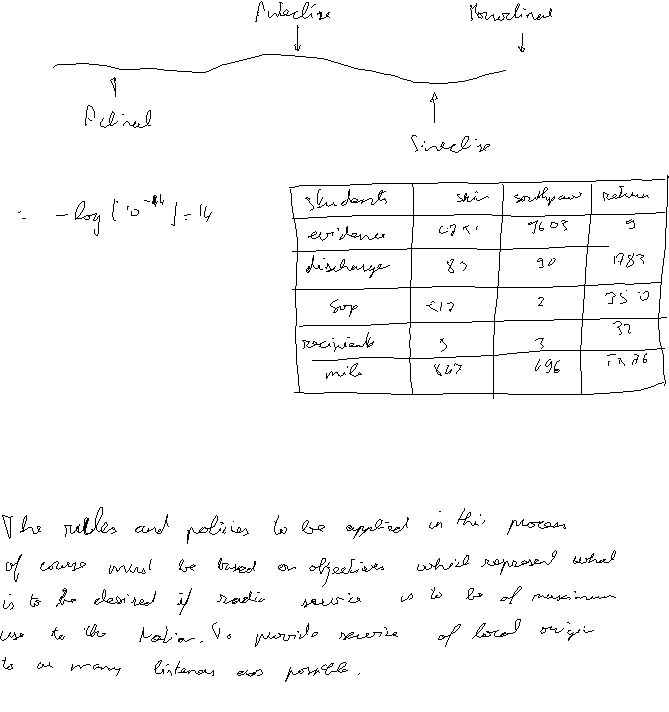 Anteclise Monoclinal
Actinal
Sineclise
= -log [10^-14] = 14
students skin southpaw return
evidence 9603 9
discharge 83 90 1783
sop 2 3510
recipients 5 3 32
mile 847 696
The rules and policies to be applied in this process
of course must be based on objectives which represent what
is to be desired if radio service is to be of maximum
use to the Nation. To provide service of local origin
to as many listeners as possible.